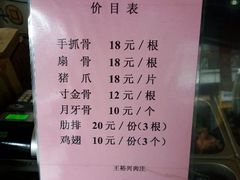 价目表
手抓骨 18元/根
扇骨 18元/根
猪爪 18元/片
寸金骨 12元/根
月牙骨 10元/个
肋排 20元/份(3根)
鸡翅 10元/份(3个)